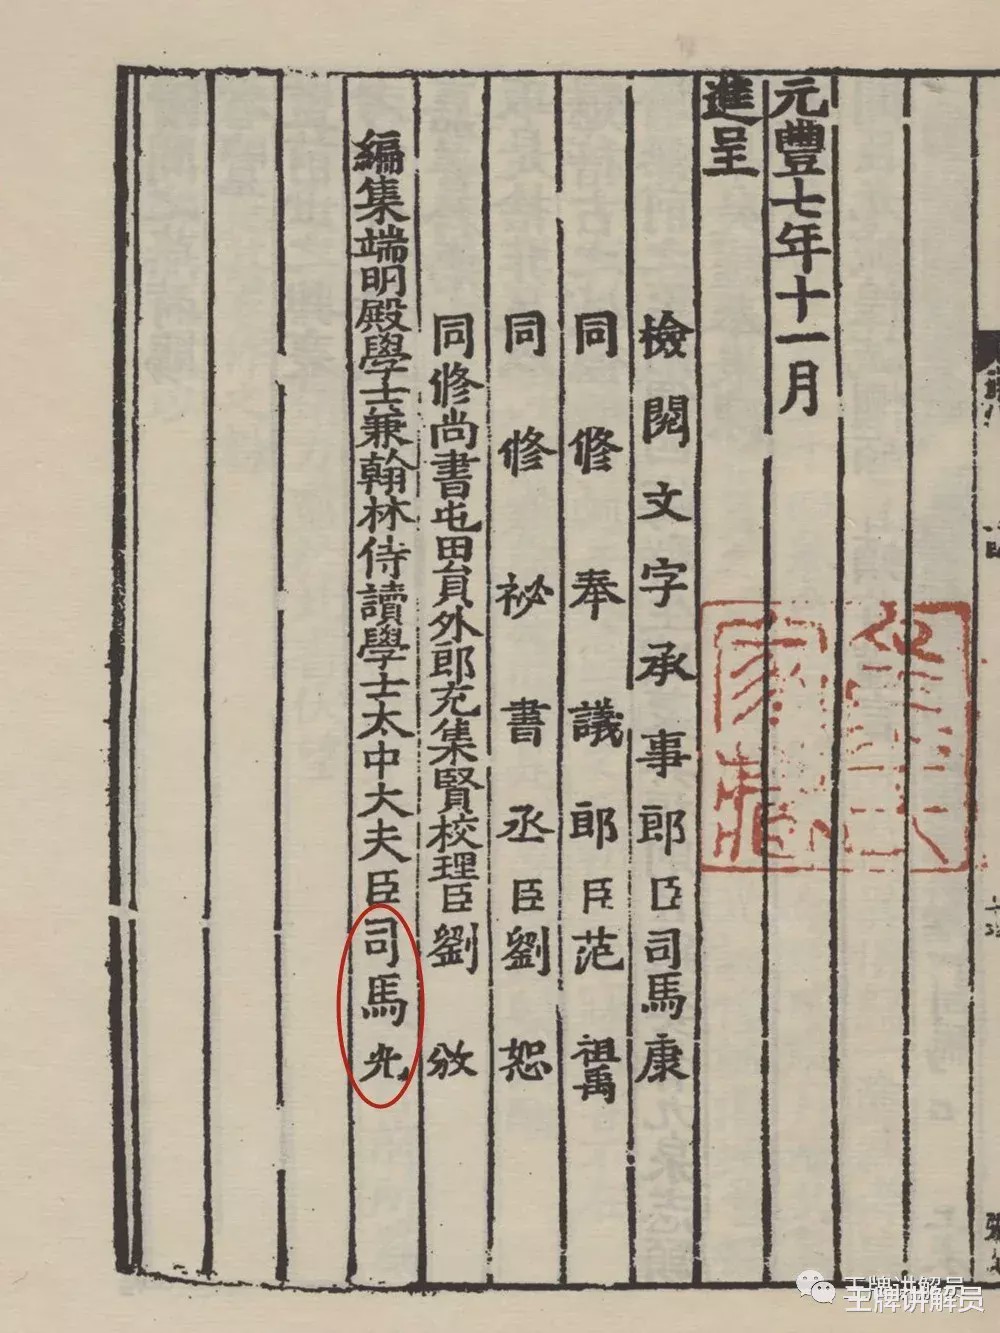 元豐七年十一月
進呈
檢閱文字承事郎臣司馬康
同修奉議郎臣范祖禹
同修祕書丞臣劉恕
同修尚書屯田員外郎充集賢校理臣劉攽
編集端明殿學士兼翰林侍讀學士太中大夫臣司馬光
王牌讲解员
王牌讲解员